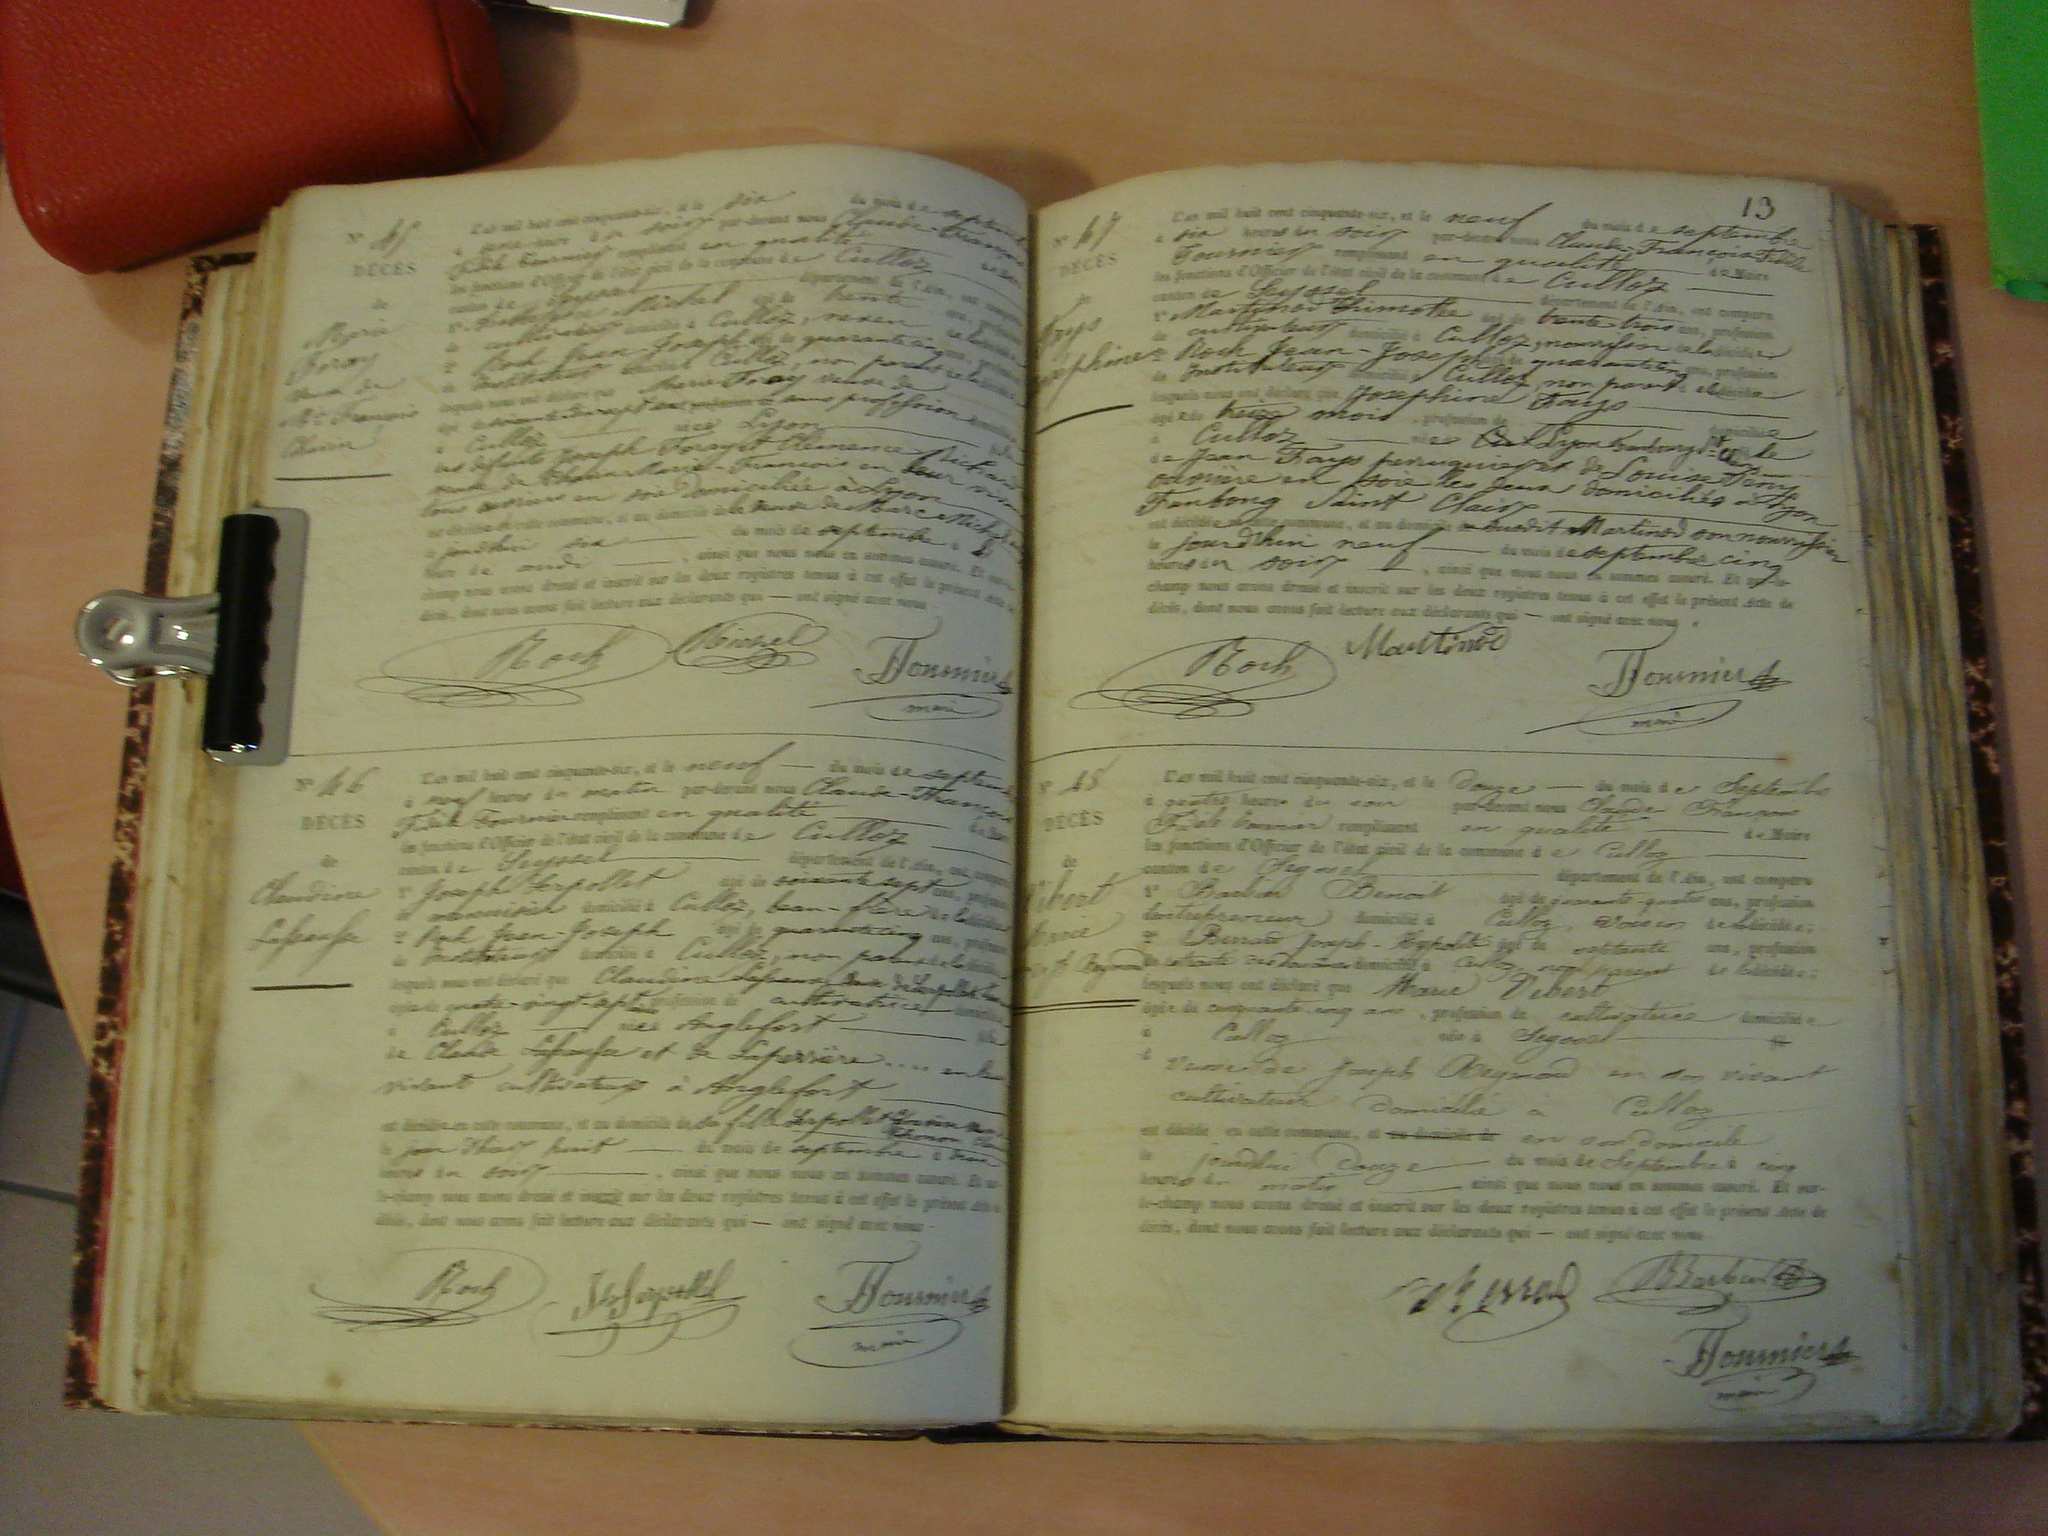 N° 45
DÉCÈS
de
Marie
Foray
veuve de
Chavin
L'an mil huit cent cinquante-six, et le six du mois de septembre
heure du soir par-devant nous Claude-François
Fidèle Fournier remplissant en qualité de Maire
les fonctions d'Officier de l'état civil de la commune de Culloz
canton de Seyssel département de l'Ain, ont comparu
1° Michel âgé de trente ans, profession
de cultivateur domicilié à Culloz,
2° Roch Jean-Joseph âgé de quarante cinq ans, profession
de instituteur domicilié à Culloz, non parent de la décédée
lesquels nous ont déclaré que Marie Foray veuve de
âgée de soixante sept ans sans profession domiciliée
à Culloz née à Lyon
des défunts Joseph Foray et Clémence
en leur vivant
tous ouvriers en soie domiciliés à Lyon
est décédée en cette commune, et au domicile de
le jourdhui six du mois de septembre à
heure de , ainsi que nous nous en sommes assuré. Et sur-le-
champ nous avons dressé et inscrit sur les deux registres tenus à cet effet le présent Acte de
décès, dont nous avons fait lecture aux déclarants qui — ont signé avec nous.
Roch Fournier
maire
N° 46
DÉCÈS
de
Claudine
L'an mil huit cent cinquante-six, et le neuf du mois de septembre
à neuf heures du matin par-devant nous Claude-François
Fidèle Fournier remplissant en qualité de Maire
les fonctions d'Officier de l'état civil de la commune de Culloz
canton de Seyssel département de l'Ain, ont comparu
1° Joseph Serpollet âgé de soixante sept ans, profession
de menuisier domicilié à Culloz, beau-frère de la décédée
2° Roch Jean-Joseph âgé de quarante cinq ans, profession
de instituteur domicilié à Culloz, non parent de la décédée
lesquels nous ont déclaré que Claudine
âgée de quatre-vingt-sept ans profession de cultivatrice domiciliée
à Culloz née à Anglefort fille
de Claude et de Laperrière .... en leur
vivant cultivateurs à Anglefort
est décédée en cette commune, et au domicile de sa fille Serpollet
le jour d'hier huit du mois de septembre à
heures du soir , ainsi que nous nous en sommes assuré. Et sur-
le-champ nous avons dressé et inscrit sur les deux registres tenus à cet effet le présent Acte de
décès, dont nous avons fait lecture aux déclarants qui — ont signé avec nous.
Roch Serpollet Fournier
maire
13
N° 47
DÉCÈS
de
Fays
Joséphine
L'an mil huit cent cinquante-six, et le neuf du mois de septembre
à six heures du soir par-devant nous Claude-François Fidèle
Fournier remplissant en qualité de Maire
les fonctions d'Officier de l'état civil de la commune de Culloz
canton de Seyssel département de l'Ain, ont comparu
1° Martinod Thimothée âgé de trente trois ans, profession
de cultivateur domicilié à Culloz, nourricier de la décédée
2° Roch Jean-Joseph âgé de quarante cinq ans, profession
de instituteur domicilié à Culloz, non parent de la décédée
lesquels nous ont déclaré que Joséphine Fays
âgée de treize mois, profession de domiciliée
à Culloz née à Lyon faubourg St Clair fille
de Jean Fays perruquier et de Louise
ouvrière en soie les deux domiciliés à Lyon
Faubourg Saint Clair
est décédée en cette commune, et au domicile dudit Martinod son nourricier
le jourdhui neuf du mois de septembre cinq
heures du soir , ainsi que nous nous en sommes assuré. Et sur-le-
champ nous avons dressé et inscrit sur les deux registres tenus à cet effet le présent Acte de
décès, dont nous avons fait lecture aux déclarants qui — ont signé avec nous.
Roch Martinod Fournier
maire
N° 48
DÉCÈS
de
Vibert
Marie
Reymond
L'an mil huit cent cinquante-six, et le douze du mois de Septembre
à quatre heures du soir par-devant nous Claude François
Fidèle Fournier remplissant en qualité de Maire
les fonctions d'Officier de l'état civil de la commune de Culloz
canton de Seyssel département de l'Ain, ont comparu
1° Benoit âgé de quarante-quatre ans, profession
d'entrepreneur domicilié à Culloz, voisin de la décédée;
2° Joseph-Hypolite âgé de septante ans, profession
de retraité des douanes domicilié à Culloz non parent de la décédée;
lesquels nous ont déclaré que Marie Vibert
âgée de cinquante-cinq ans, profession de cultivatrice domiciliée
à Culloz née à Seyssel
Veuve de Joseph Reymond en son vivant
cultivateur domicilié à Culloz
est décédée en cette commune, et au domicile de en son domicile
le jourdhui douze du mois de Septembre à cinq
heures du matin ainsi que nous nous en sommes assuré. Et sur-
le-champ nous avons dressé et inscrit sur les deux registres tenus à cet effet le présent Acte de
décès, dont nous avons fait lecture aux déclarants qui — ont signé avec nous.
Fournier
maire